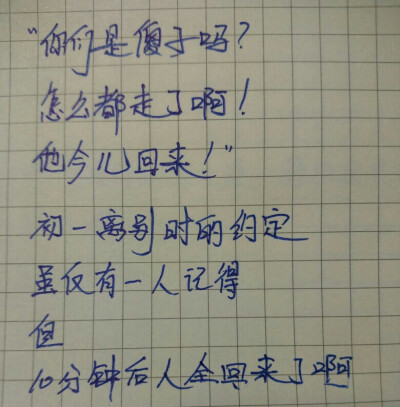 “你们是傻子吗？
怎么都走了啊！
他今儿回来！”
初一离别时的约定
虽仅有一人记得
但
10分钟后人全回来了啊